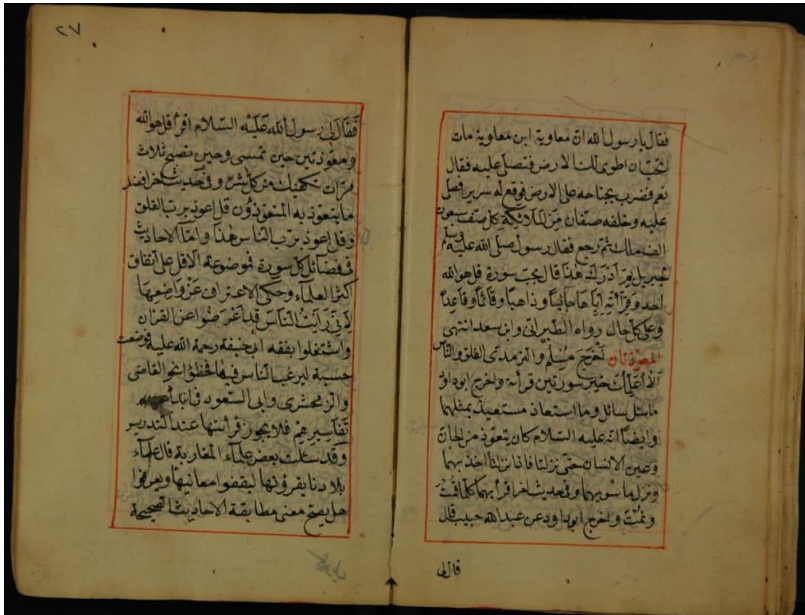 فقال يا رسول الله ان معاوية ابن معاوية مات
تحب ان اطوى لك الارض فتصلى عليه فقال
نعم فضرب بجناحه على الارض فوقع له سرير فصلى
عليه وخلفه صفان من الملائكة كل صف سبعون
الف ملك ثم رجع فقال رسول صلى الله عليه وسلم
لجبريل بم ادرك هذا قال بحب سورة قل هو الله
احد وقرأته اياها جائيا وذاهبا وقائما وقاعدا
وعلى كل حال رواه الطبرانى وابن سعد انتهى
المعوذتان اخرج مسلم والترمذى الفلق والناس
الا اعلمك خير سورتين قرأته واخرج ابو داود
ما سئل سائل وما استعاذ مستعيذ بمثلهما
وايضا انه عليه السلام كان يتعوذ من الجان
وعين الانسان حتى نزلتا فاذا نزلتا اخذ بهما
وترك ما سويهما وفى حديث اخر اقرأ بهما كلما قمت
ونمت واخرج ابو داود عن عبد الله حبيب قال
قال لى
٢٧
فقال لى رسول الله عليه السلام اقرأ قل هو الله
ومعوذتين حين تمسى وحين تصبح ثلاث
مرات تكفيك من كل شئ وفى حديث اخر افضل
ما يتعوذ به المتعوذون قل اعوذ برب الفلق
وقل اعوذ برب الناس هذا واما الاحاديث
فى فضائل كل سورة فموضوعة الاقل على اتفاق
اكثر العلماء وحكى الاعتراف عن واضعها
لانى رايت الناس قد اعرضوا عن القران
واشتغلوا بفقه ابى حنيفة رحمة الله عليه فوضعت
حسبة ليرغب الناس فيها نحو القاضى
والزمخشرى وابى السعود
تفاسيرهم فلا يجوز قرأتها عند التدريس
وقد سئلت بعض علماء المغاربة قال علماء
بلادنا يقرؤنها ليقفوا معانيها ويعرفوا
هل يصح معنى مطابقة الاحاديث الصحيحة